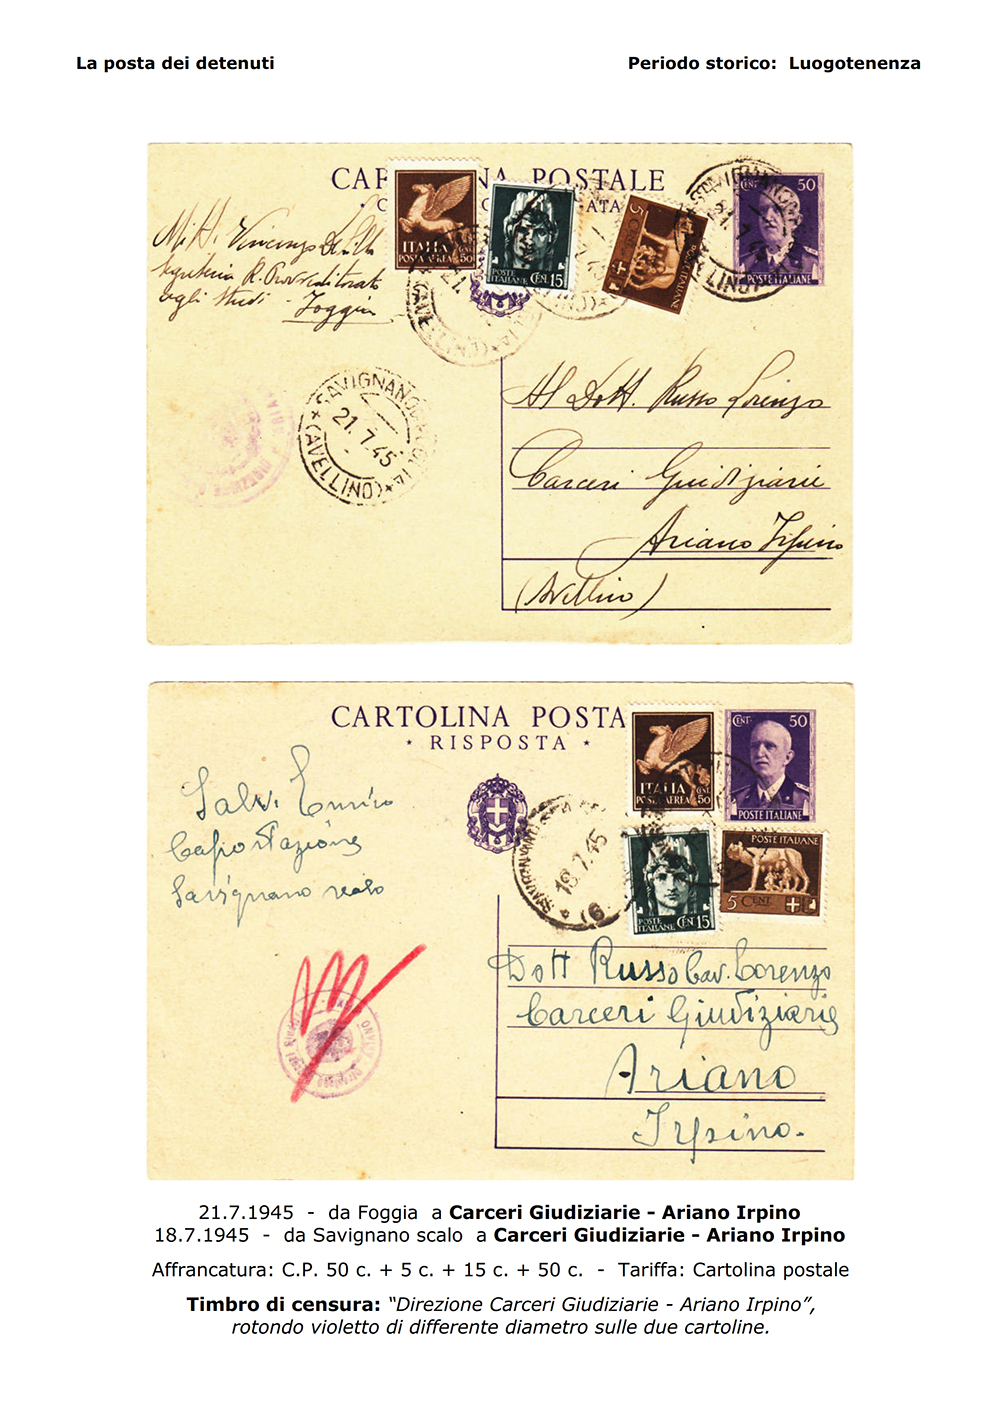 La posta dei detenuti
Periodo storico: Luogotenenza
CARTOLINA POSTALE
50
ITALIA
POSTA AEREA 50
POSTE ITALIANE CENT. 15
5 CENT.
POSTE ITALIANE
POSTE ITALIANE
Mitt. Vincenzo
Segreteria R. Provveditorato
agli Studi - Foggia
SAVIGNANO
21.7.45
(AVELLINO)
Al Dott. Russo Lorenzo
Carceri Giudiziarie
Ariano Irpino
(Avellino)
CARTOLINA POSTA
* RISPOSTA *
CENT. 50
ITALIA CENT.
POSTA AEREA 50
POSTE ITALIANE
POSTE ITALIANE CENT 15
POSTE ITALIANE
5 CENT.
18.7.45
Salvi Enrico
Capostazione
Savignano scalo
Dott Russo Cav. Lorenzo
Carceri Giudiziarie
Ariano
Irpino.
21.7.1945 - da Foggia a Carceri Giudiziarie - Ariano Irpino
18.7.1945 - da Savignano scalo a Carceri Giudiziarie - Ariano Irpino
Affrancatura: C.P. 50 c. + 5 c. + 15 c. + 50 c. - Tariffa: Cartolina postale
Timbro di censura: “Direzione Carceri Giudiziarie - Ariano Irpino”,
rotondo violetto di differente diametro sulle due cartoline.